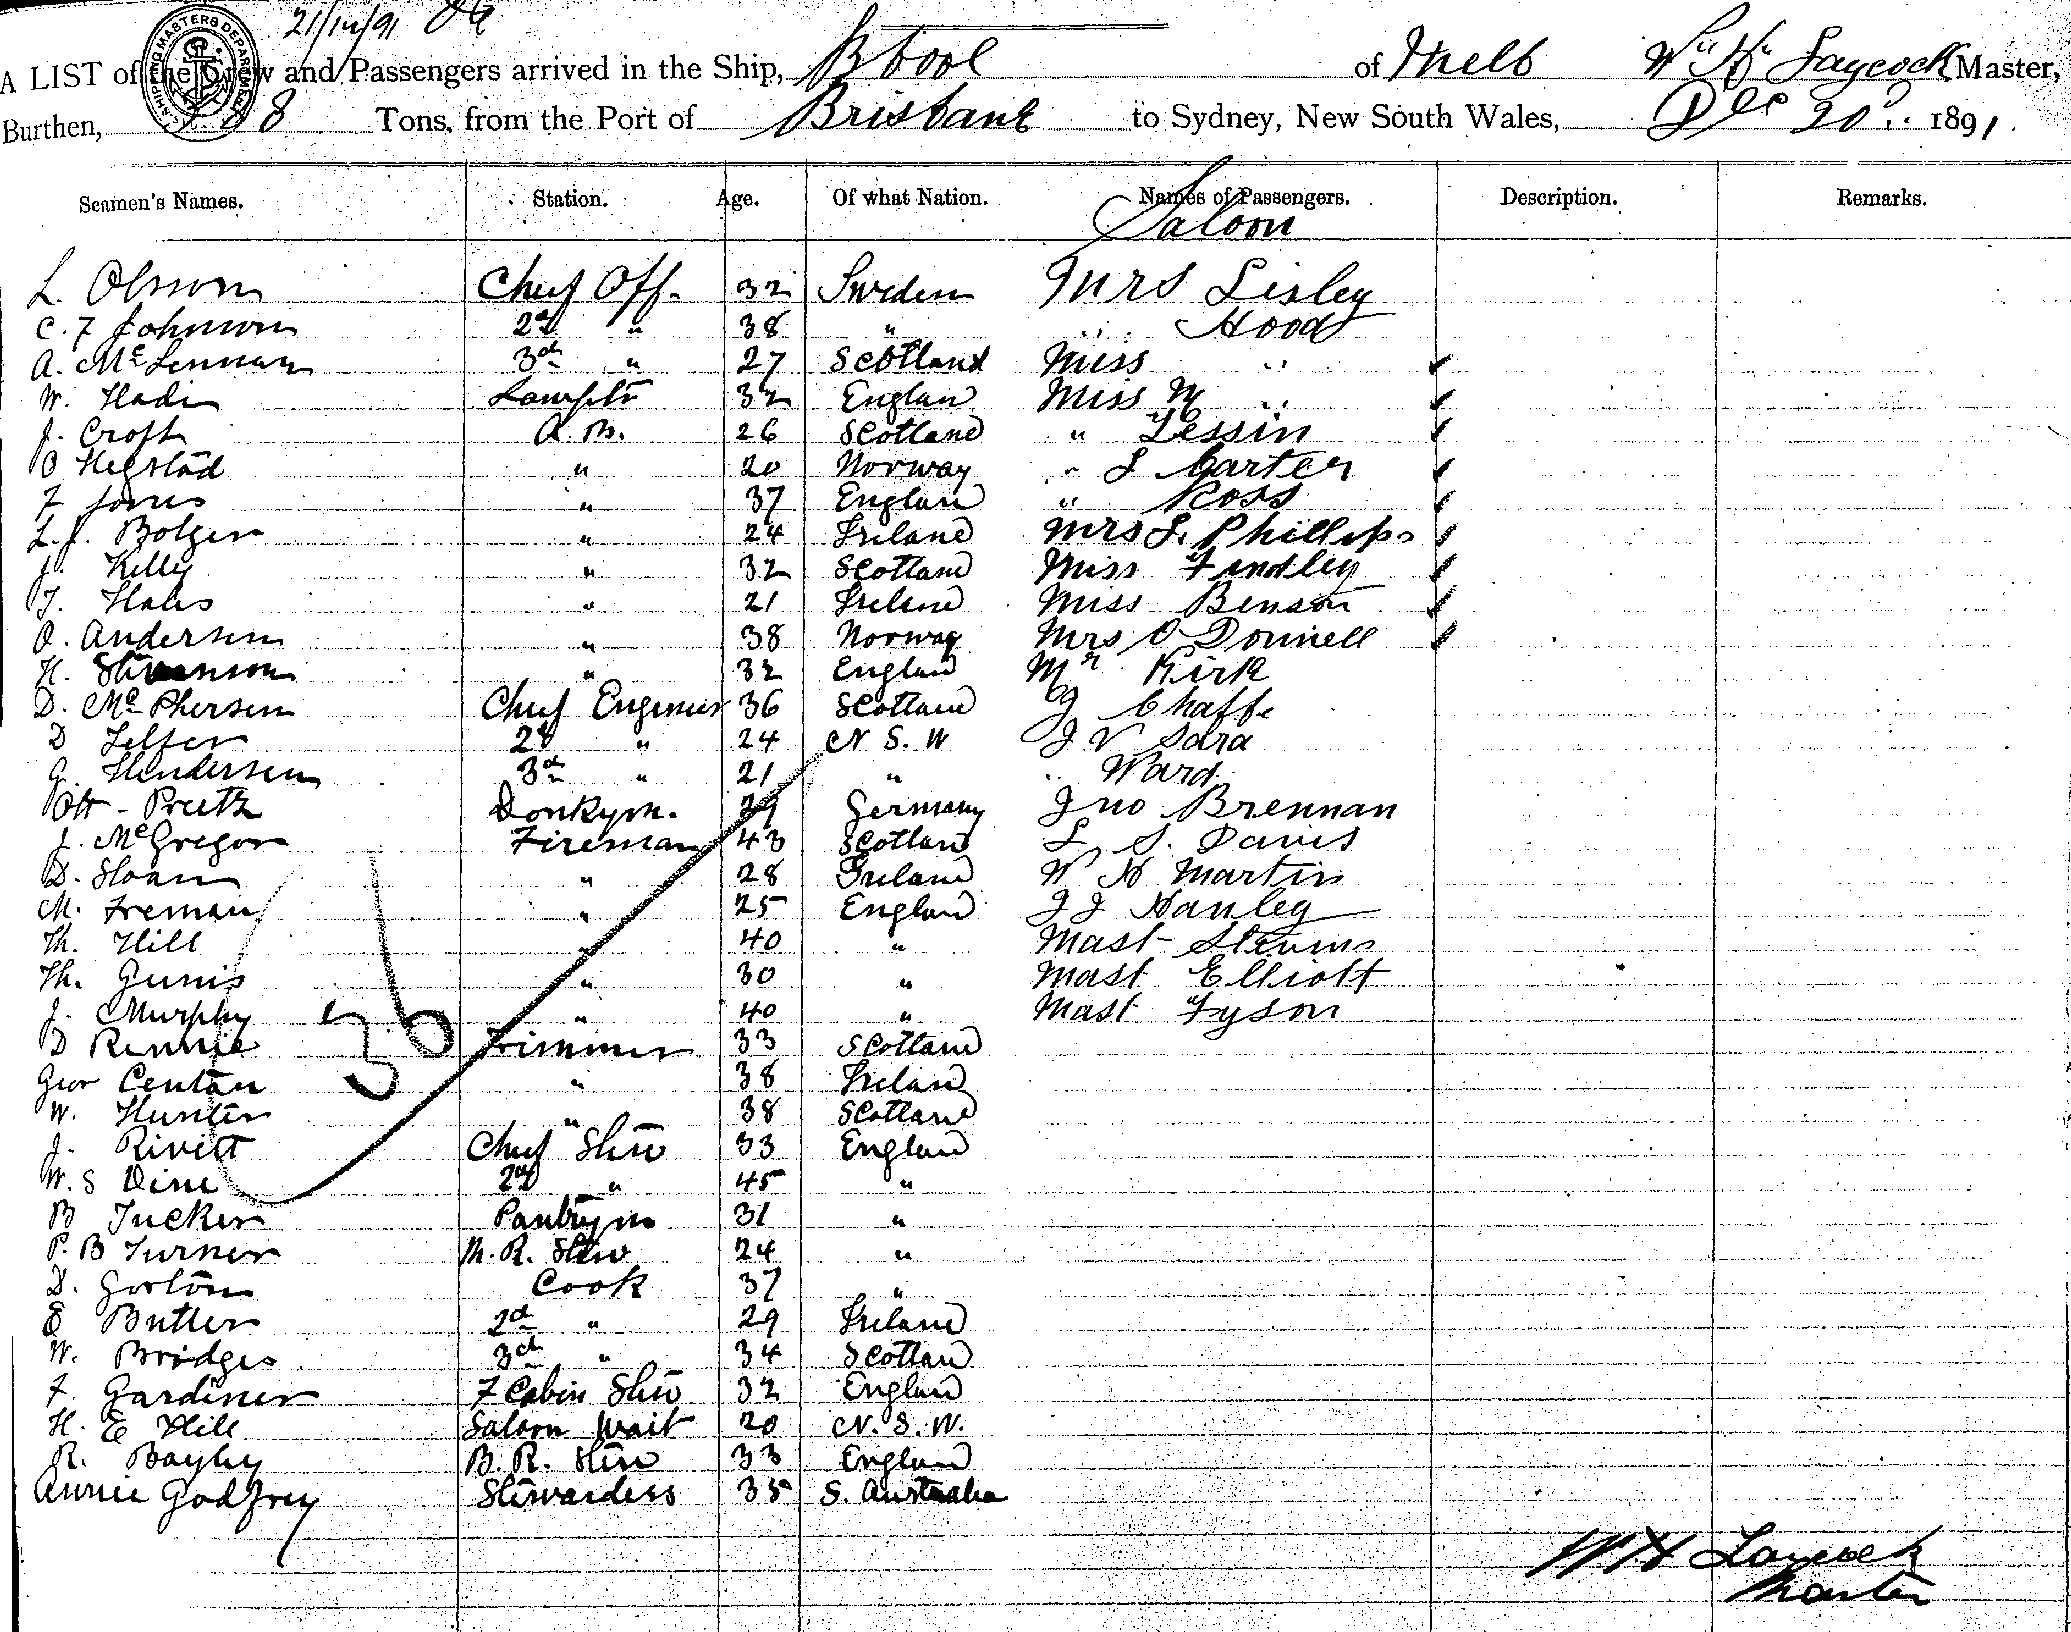 21/12/91
SHIPPING MASTERS DEPARTMENT
A LIST of the Crew and Passengers arrived in the Ship, B'bool of Melb Wm Hy Laycock Master,
Burthen, 88 Tons, from the Port of Brisbane to Sydney, New South Wales, Dec 20 1891
Seamen's Names. Station. Age. Of what Nation. Names of Passengers. Description. Remarks.
Saloon
L. Olsson Chief Off. 32 Sweden Mrs Lisley
C. F Johnson 2nd " 38 " " Hood
A. McLennan 3rd " 27 Scotland Miss "
W. Hadi Lamptr 32 England Miss M "
J. Croft A. B. 26 Scotland " Lessin
O Hegstad " 20 Norway " L Carter
F Jones " 37 England " Ross
L. J. Bolger " 24 Ireland Mrs L. Phillips
J. Kelly " 32 Scotland Miss Findley
T. Hales " 21 Ireland Miss Benson
O. Andersen " 38 Norway Mrs O Donnell
H. Stevenson " 32 England Mr Kirk
D. McPhersen Chief Engineer 36 Scotland J Chaffe
D Telfer 2d " 24 N S. W J V Sara
G. Hendersen 3rd " 21 " " Ward
Ott - Preetz Donkym. 29 Germany Jno Brennan
J. McGregor Fireman 43 Scotland L. S. Davis
D. Sloan " 28 Ireland W H Martin
M. Freman " 25 England J J Hanley
Th. Hill " 40 " Mast Stevens
Th. Gunis " 30 " Mast Elliott
J. Murphy " 40 " Mast Tyson
D Rennie Trimmer 33 Scotland
36
Geor Centan " 38 Ireland
W. Hunter " 38 Scotland
J. Rivett Chief Stew 33 England
W. S Dine 2nd " 45 "
B Tucker Pantrym 31 "
P. B Turner M. R. Stew 24 "
D. Gorton Cook 37 "
E Butler 2d " 29 Ireland
W. Bridges 3rd " 34 Scotland
F. Gardiner F Cabin Stew 32 England
H. E Hill Saloon Wait 20 N. S. W.
R. Bayley B. R. Stew 33 England
Annie Godfrey Stewardess 35 S. Australia
W H Laycock
Master